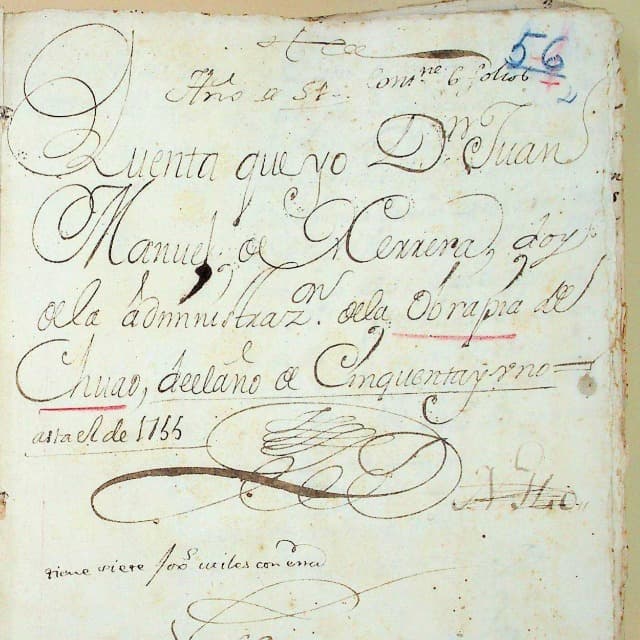 56
2
Año de 51 Contne 6 folios
Quenta que yo Dn Juan
Manuel de Herrera, doy
de la administrazn. de la Obrapia de
Chuao, deel año de Cinquenta y uno
asta el de 1755
tiene siete fox.s utiles con esta